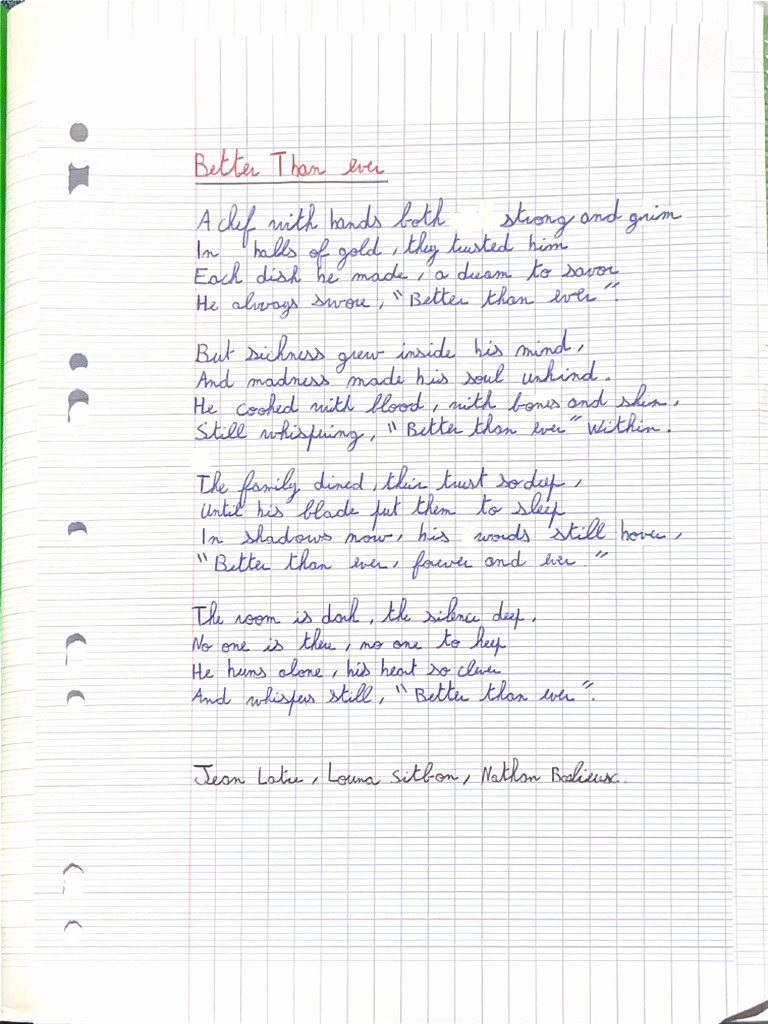 Better Than ever
A chef with hands both strong and grim
In halls of gold, they trusted him
Each dish he made, a dream to savor
He always swore, "Better than ever".
But sickness grew inside his mind,
And madness made his soul unkind.
He cooked with blood, with bones and skin,
Still whispering, "Better than ever" Within.
The family dined, their trust so deep,
Until his blade put them to sleep
In shadows now, his words still hover,
"Better than ever, forever and ever."
The room is dark, the silence deep.
No one is there, no one to keep
He hums alone, his heart so clever
And whispers still, "Better than ever".
Jean Latu, Louna Sitbon, Nathan